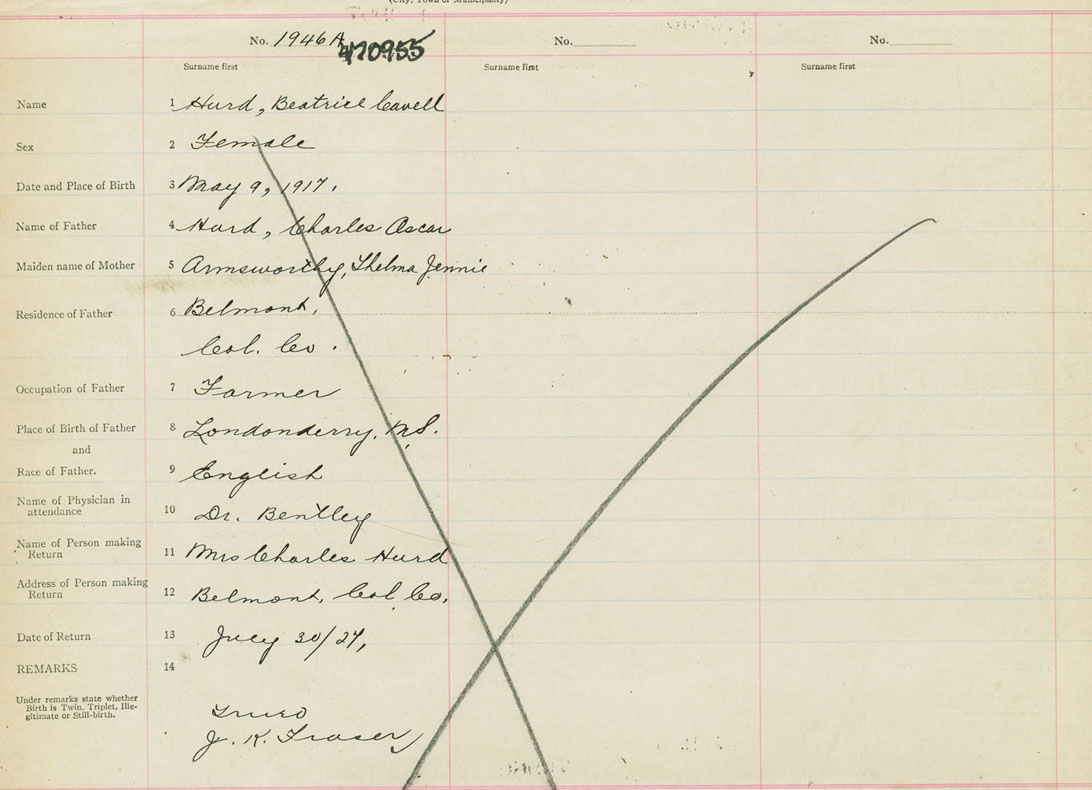 (City, Town or Municipality)
No. 1946A 470955 No. No.
Surname first Surname first Surname first
Name 1 Hurd, Beatrice Cavell
Sex 2 Female
Date and Place of Birth 3 May 9, 1917.
Name of Father 4 Hurd, Charles Oscar
Maiden name of Mother 5 Armsworthy, Thelma Jennie
Residence of Father 6 Belmont,
Col. Co.
Occupation of Father 7 Farmer
Place of Birth of Father 8 Londonderry, N.S.
and
Race of Father. 9 English
Name of Physician in
attendance 10 Dr. Bentley
Name of Person making
Return 11 Mrs Charles Hurd
Address of Person making
Return 12 Belmont, Col. Co.
Date of Return 13 July 30/27,
REMARKS 14
Under remarks state whether
Birth is Twin, Triplet, Ille-
gitimate or Still-birth.
Truro
J. K. Fraser